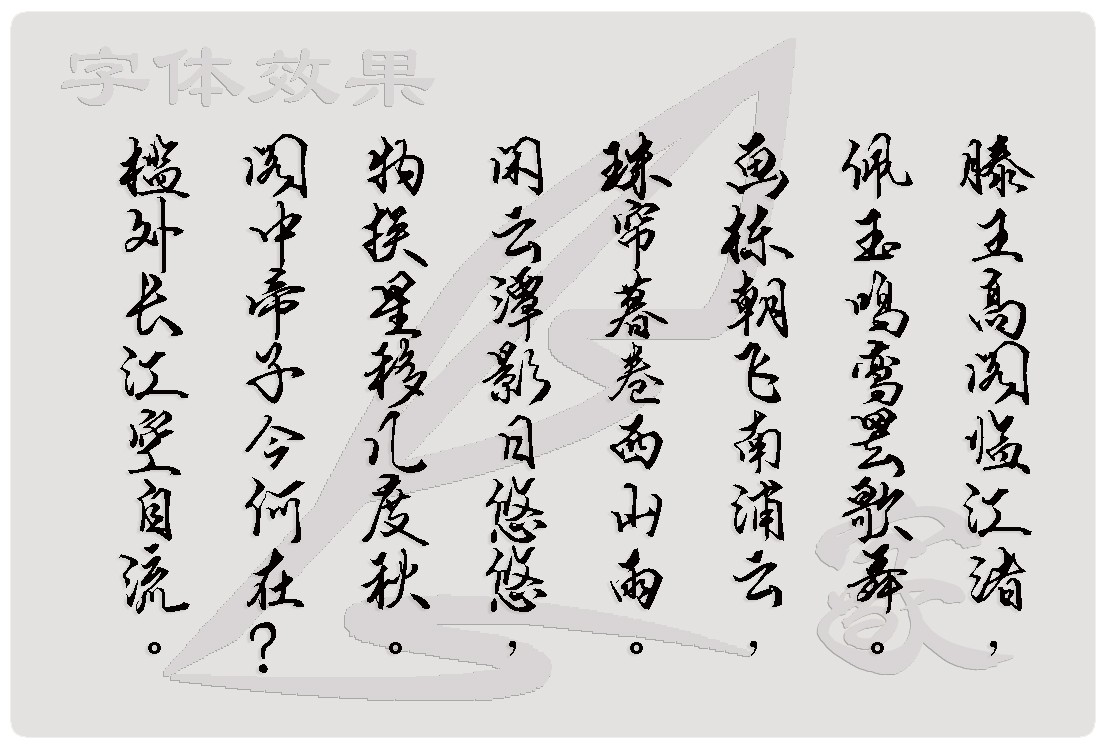 字体效果
滕王高阁临江渚，
佩玉鸣鸾罢歌舞。
画栋朝飞南浦云，
珠帘暮卷西山雨。
闲云潭影日悠悠，
物换星移几度秋。
阁中帝子今何在？
槛外长江空自流。
家